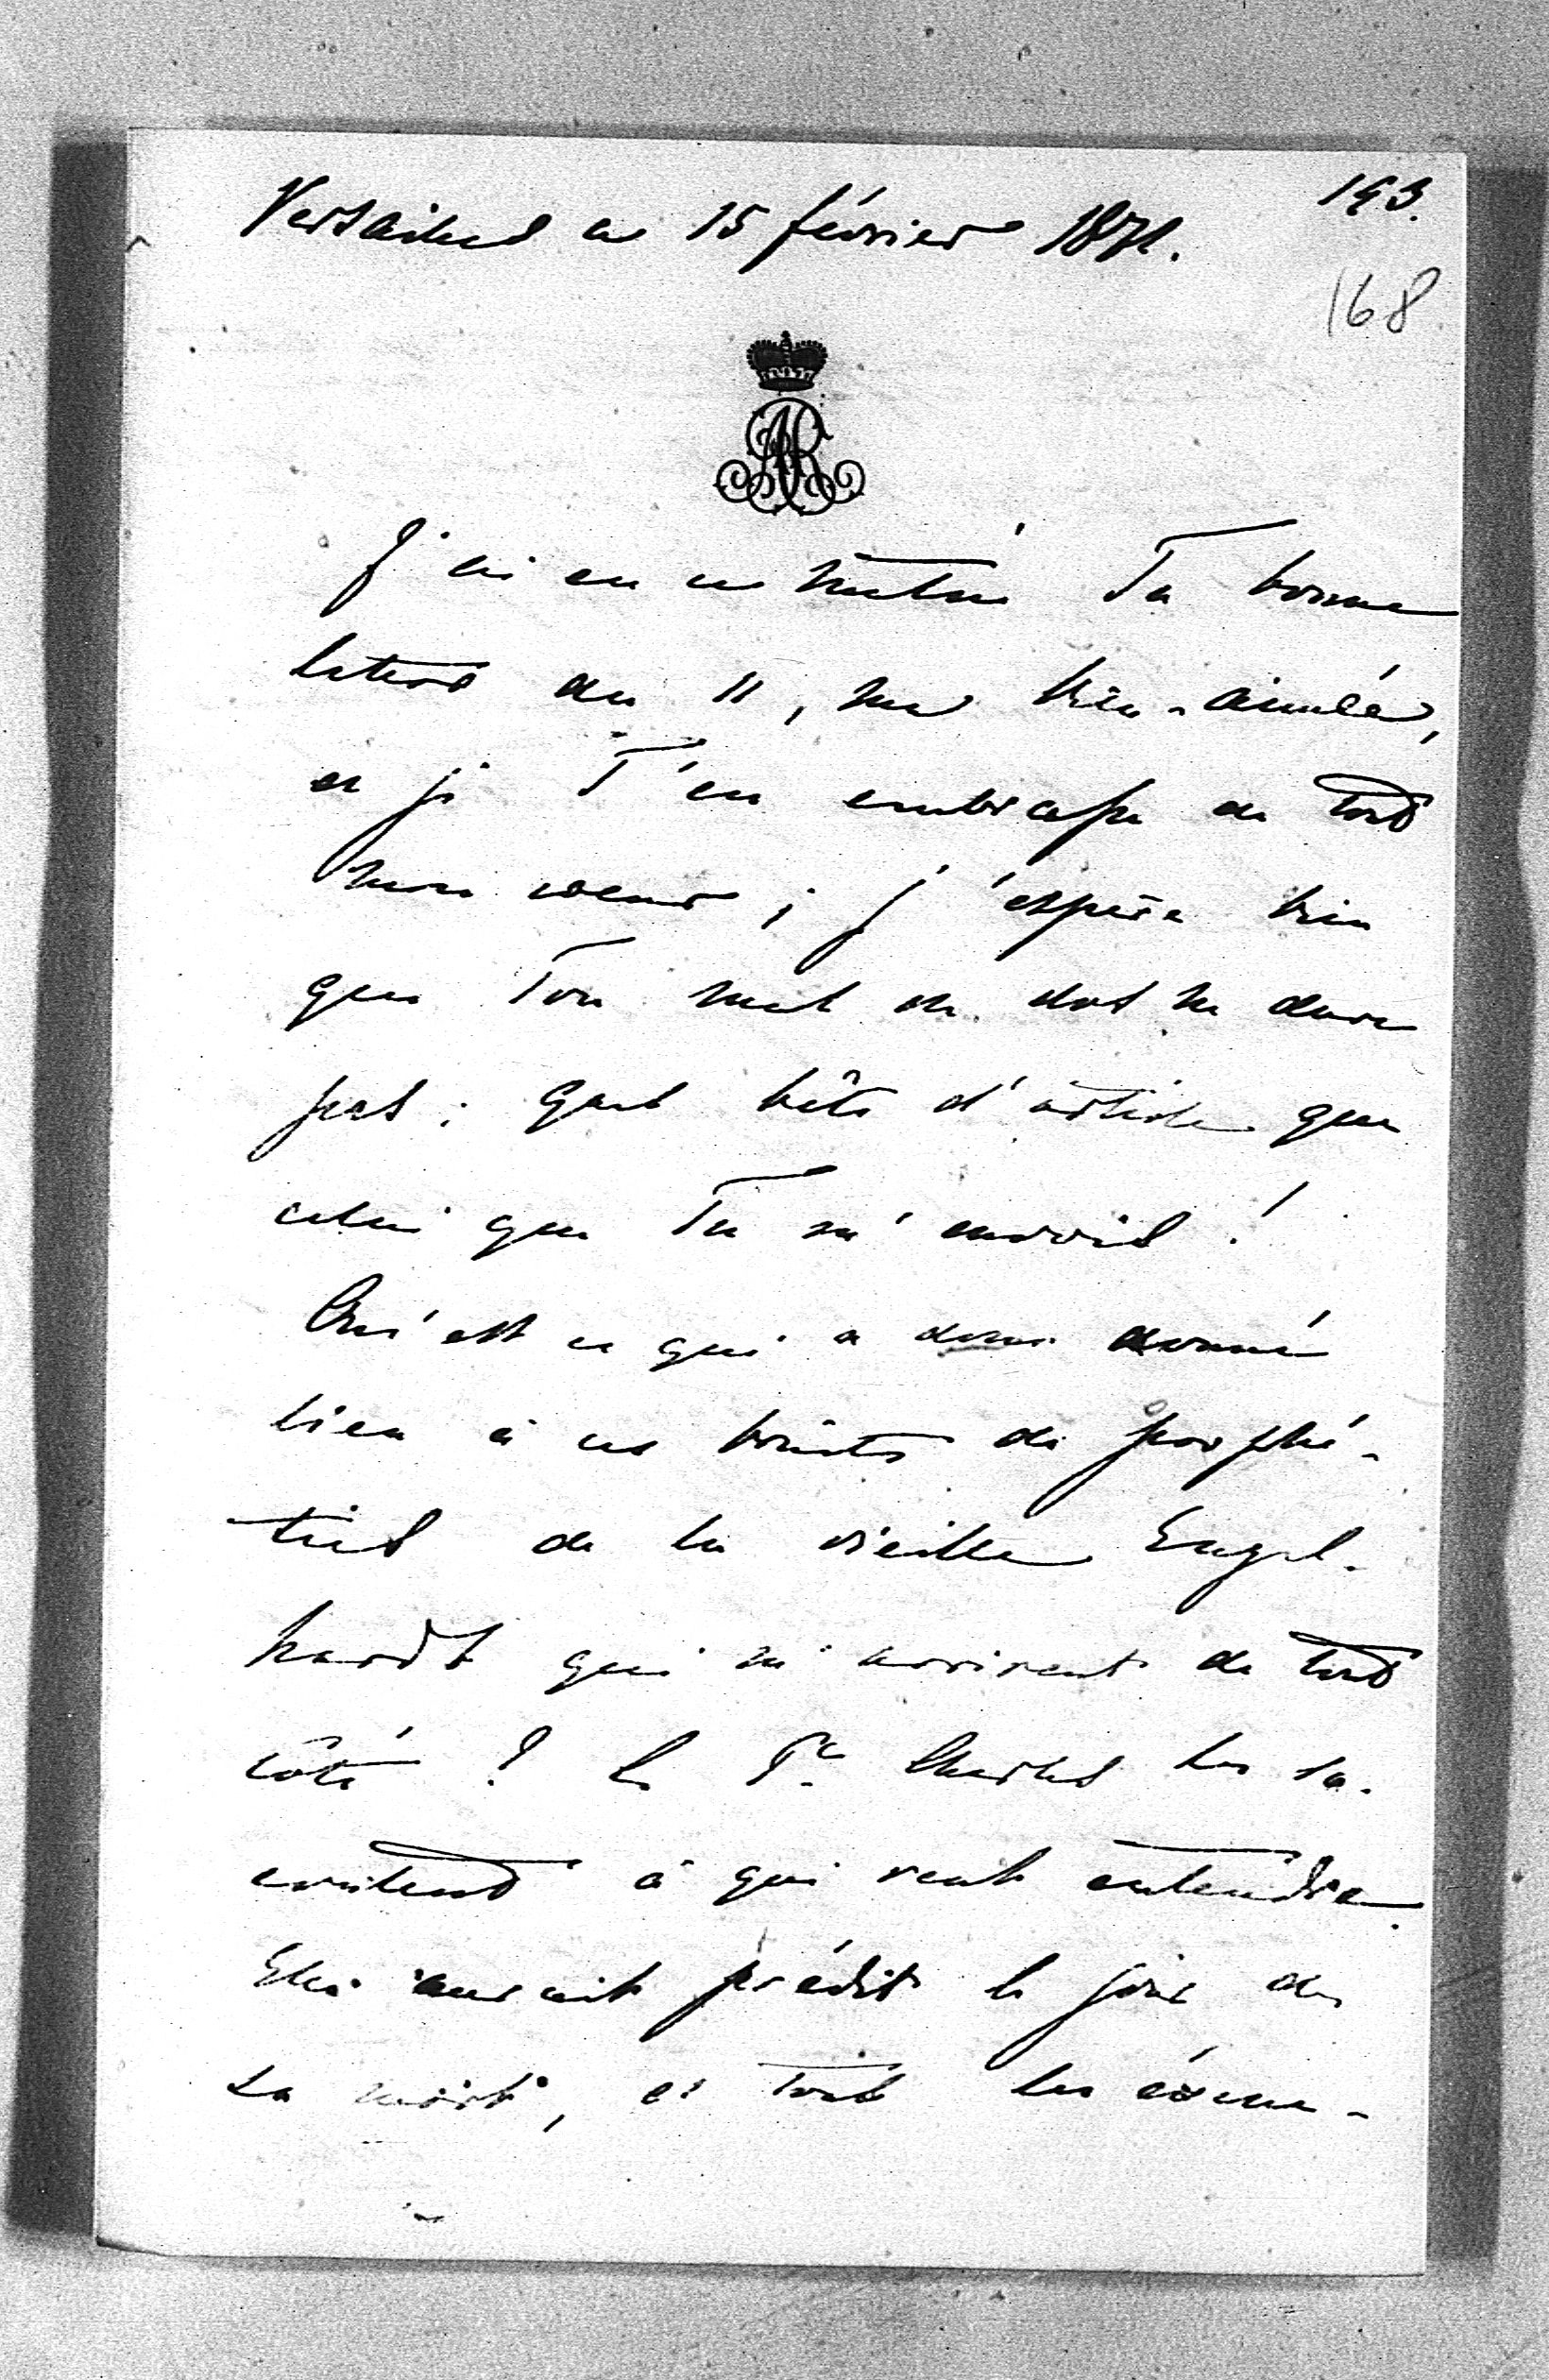 143.
Versailles ce 15 février 1871.
168
AR
J'ai eu ce matin Ta bonne
lettre du 11, ma bien-aimée,
et je T'en embrasse de tout
mon coeur; j'espère bien
que Ton mal de dos ne dure
pas; quel bête d'article que
celui que Tu m'envois!
Qu'est ce qui a donc donné
lieu à ces bruits de prophé-
ties de la vieille Engel-
hardt qui m'arrivent de tout
côté? Le Pce Charles les ra-
content à qui veut entendre.
Elle aurait prédit le jour de
sa mort, et tout les évène-